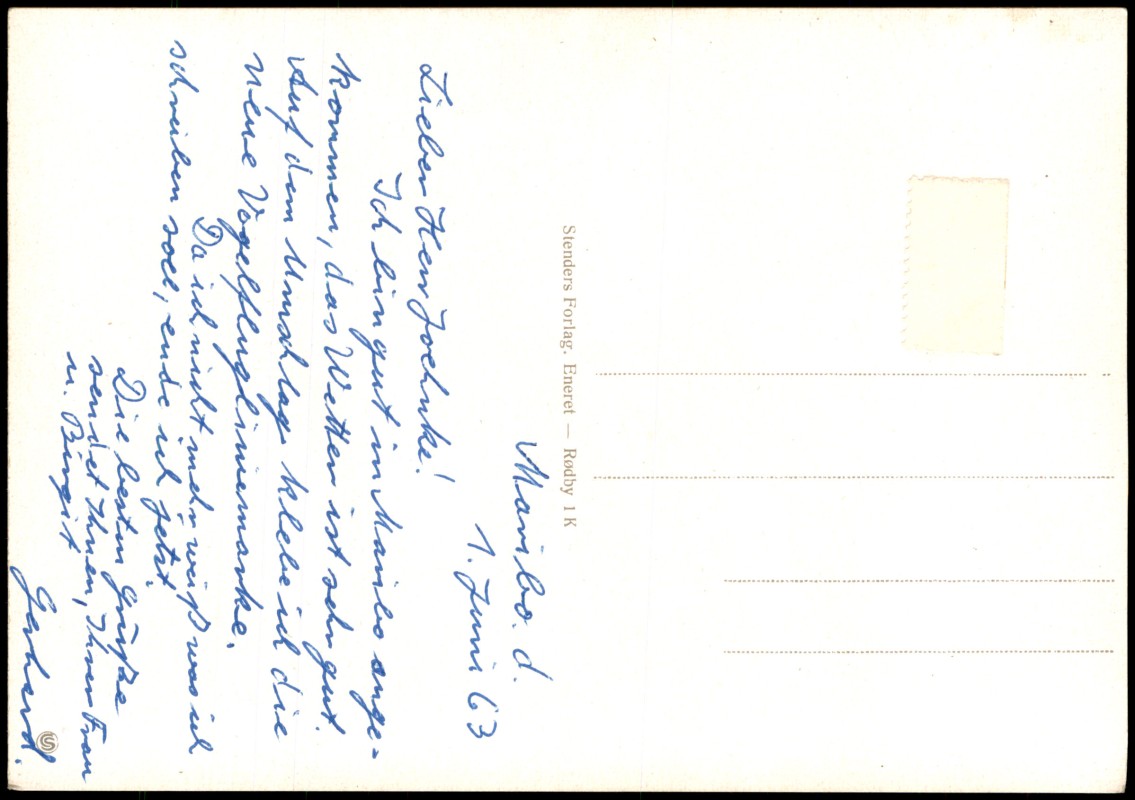 Maribo. d.
1. Juni 63
Lieber Herr Joehnke!
Ich bin gut in Maribo ange-
kommen, das Wetter ist sehr gut.
Auf dem Umschlag klebe ich die
neue Vogelflugliniemarke.
Da ich nicht mehr weiß was ich
schreiben soll, ende ich jetzt
Die besten Grüße
sendet Ihnen, Ihrer Frau
u. Birgit
Gerhard.
Stenders Forlag. Eneret — Rødby 1 K